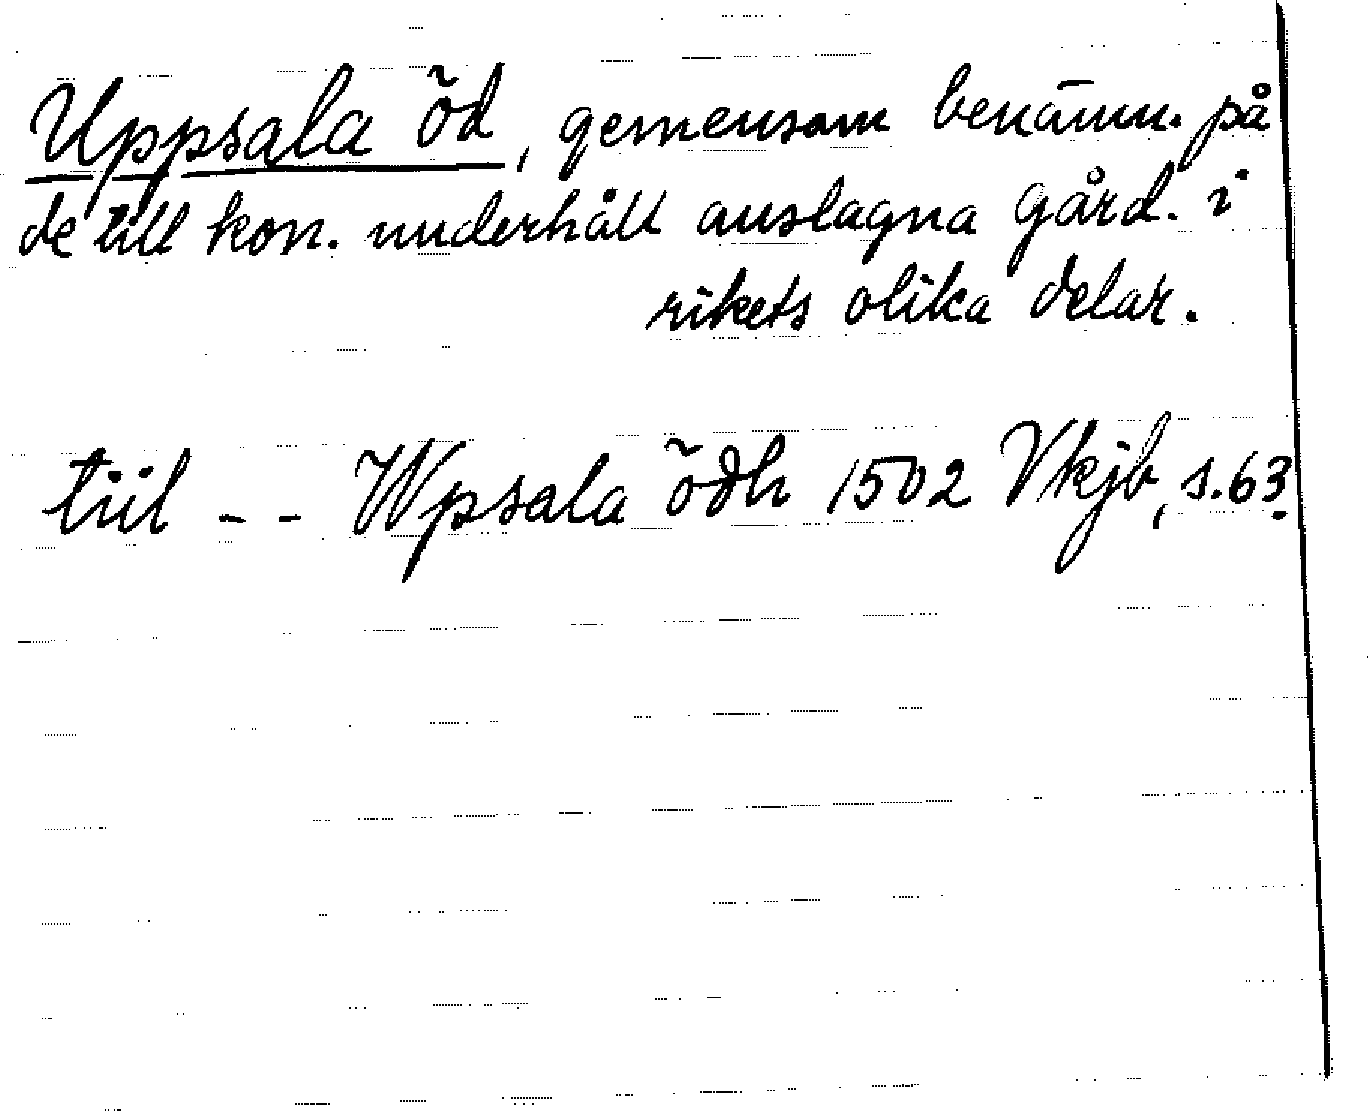 Uppsala öd, gemensam benämn. på
de till kon. underhåll anslagna gård. i
rikets olika delar.
tiil - - Wpsala ödh 1502 Vkjb, s. 63.